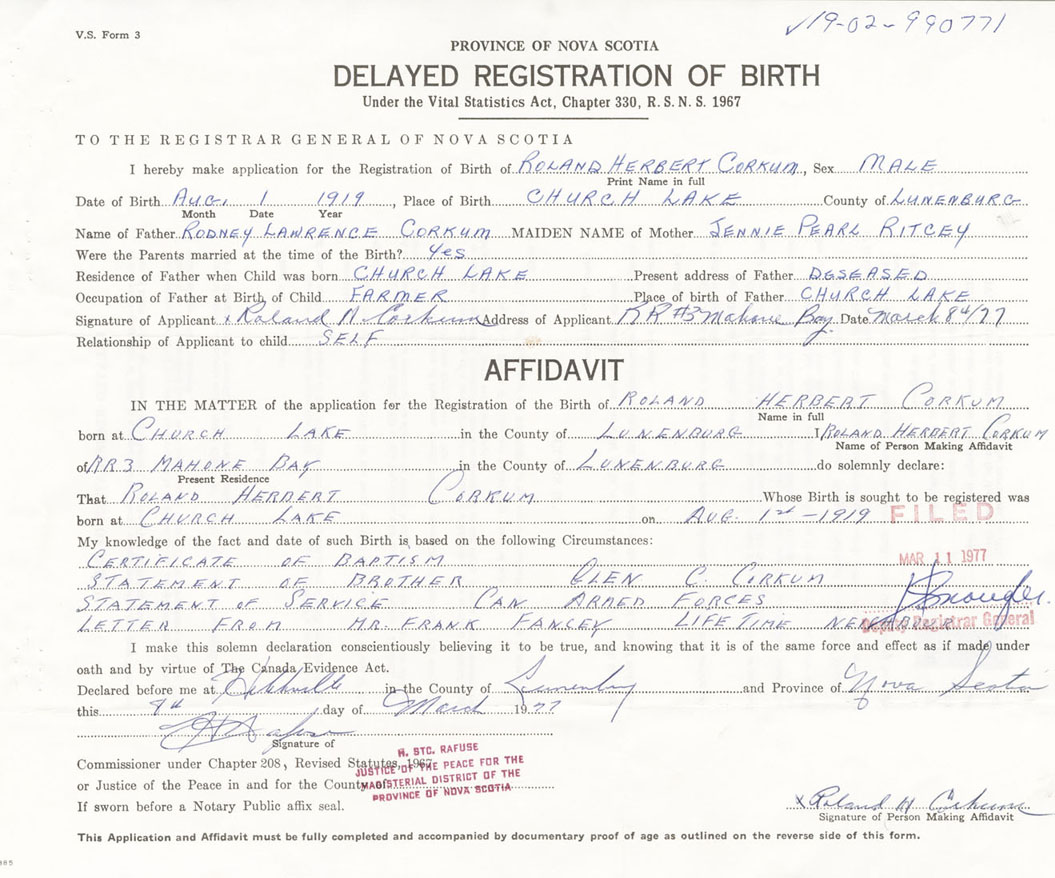 V.S. Form 3
✓19-02-990771
PROVINCE OF NOVA SCOTIA
DELAYED REGISTRATION OF BIRTH
Under the Vital Statistics Act, Chapter 330, R.S.N.S. 1967
TO THE REGISTRAR GENERAL OF NOVA SCOTIA
I hereby make application for the Registration of Birth of ROLAND HERBERT CORKUM, Sex MALE
Print Name in full
Date of Birth AUG. 1 1919, Place of Birth CHURCH LAKE County of LUNENBURG
Month Date Year
Name of Father RODNEY LAWRENCE CORKUM MAIDEN NAME of Mother JENNIE PEARL RITCEY
Were the Parents married at the time of the Birth? Yes
Residence of Father when Child was born CHURCH LAKE Present address of Father DESEASED
Occupation of Father at Birth of Child FARMER Place of birth of Father CHURCH LAKE
Signature of Applicant x Roland H Corkum Address of Applicant RR #3 Mahone Bay Date March 8th/77
Relationship of Applicant to child SELF
AFFIDAVIT
IN THE MATTER of the application for the Registration of the Birth of ROLAND HERBERT CORKUM
Name in full
born at CHURCH LAKE in the County of LUNENBURG I, ROLAND HERBERT CORKUM
Name of Person Making Affidavit
of RR3 MAHONE BAY in the County of LUNENBURG do solemnly declare:
Present Residence
That ROLAND HERBERT CORKUM Whose Birth is sought to be registered was
born at CHURCH LAKE on AUG. 1st - 1919 FILED
My knowledge of the fact and date of such Birth is based on the following Circumstances:
CERTIFICATE OF BAPTISM MAR 11 1977
STATEMENT OF BROTHER GLEN C. CORKUM
STATEMENT OF SERVICE CAN ARMED FORCES
LETTER FROM MR. FRANK FANCEY LIFE TIME Deputy Registrar General
I make this solemn declaration conscientiously believing it to be true, and knowing that it is of the same force and effect as if made under
oath and by virtue of The Canada Evidence Act.
Declared before me at in the County of Lunenburg and Province of Nova Scotia
this 8th day of March 1977
Signature of
Commissioner under Chapter 208, Revised Statutes, 1967
or Justice of the Peace in and for the County of
If sworn before a Notary Public affix seal.
H. STC. RAFUSE
JUSTICE OF THE PEACE FOR THE
MAGISTERIAL DISTRICT OF THE
PROVINCE OF NOVA SCOTIA
x Roland H Corkum
Signature of Person Making Affidavit
This Application and Affidavit must be fully completed and accompanied by documentary proof of age as outlined on the reverse side of this form.